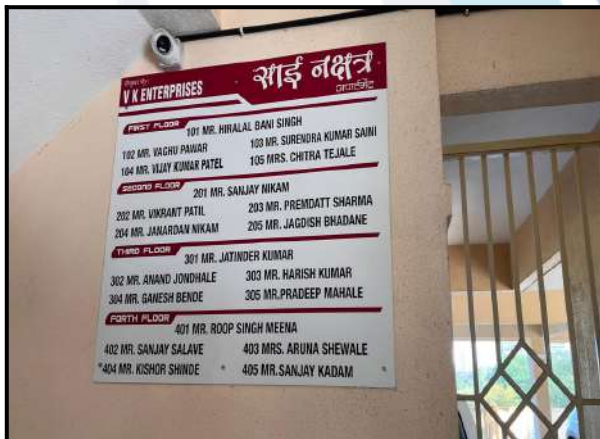 V K ENTERPRISES
साई नक्षत्र
अपार्टमेंट
FIRST FLOOR
101 MR. HIRALAL BANI SINGH
102 MR. VAGHU PAWAR 103 MR. SURENDRA KUMAR SAINI
104 MR. VIJAY KUMAR PATEL 105 MRS. CHITRA TEJALE
SECOND FLOOR
201 MR. SANJAY NIKAM
202 MR. VIKRANT PATIL 203 MR. PREMDATT SHARMA
204 MR. JANARDAN NIKAM 205 MR. JAGDISH BHADANE
THIRD FLOOR
301 MR. JATINDER KUMAR
302 MR. ANAND JONDHALE 303 MR. HARISH KUMAR
304 MR. GANESH BENDE 305 MR.PRADEEP MAHALE
FORTH FLOOR
401 MR. ROOP SINGH MEENA
402 MR. SANJAY SALAVE 403 MRS. ARUNA SHEWALE
404 MR. KISHOR SHINDE 405 MR.SANJAY KADAM